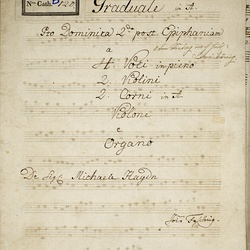 Nro Cath.
Graduale in A.
Pro Dominica 2da post Epiphaniam
a
4. Voci in pieno
2. Violini
2. Corni in A
Violone
e
Organo
De Sig. Michaele Haydn